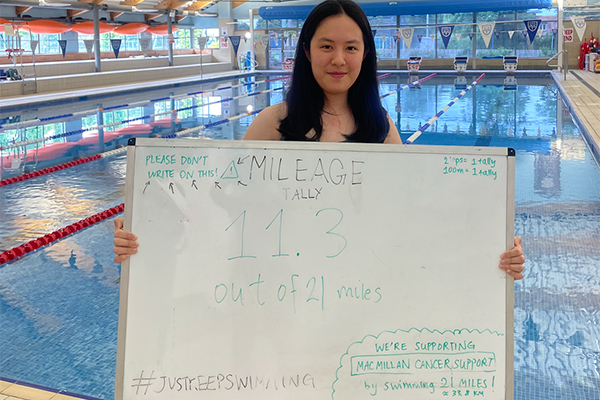 PLEASE DON'T
WRITE ON THIS!
MILEAGE
TALLY
= 1 tally
100m = 1 tally
11.3
out of 21 miles
#JUSTKEEPSWIMMING
WE'RE SUPPORTING
MACMILLAN CANCER SUPPORT
by swimming 21 MILES!
≈ 33.8 KM